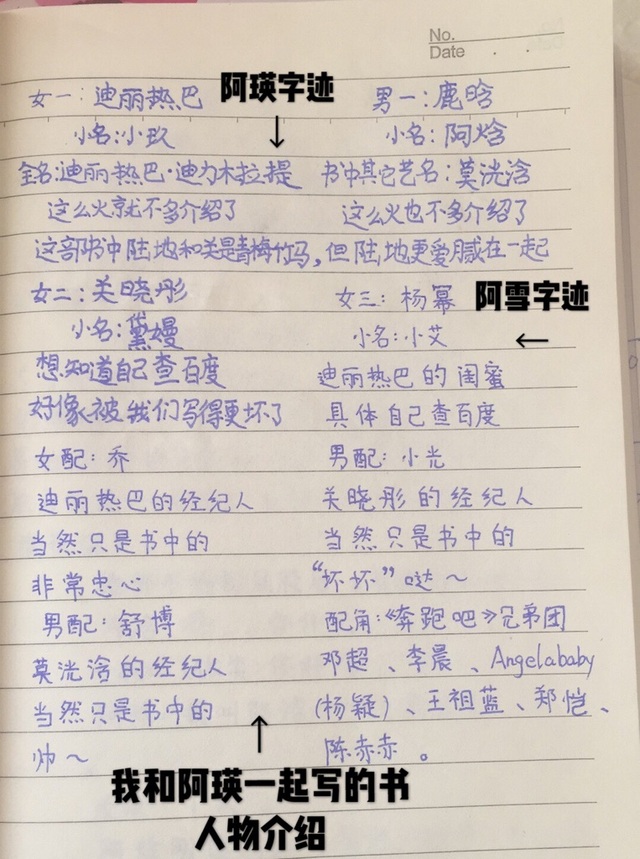 No.
Date
女一:迪丽热巴 阿瑛字迹 男一:鹿晗
小名:小玖 小名:阿焓
全名:迪丽热巴·迪力木拉提 书中其它艺名:莫洸浛
这么火就不多介绍了 这么火也不多介绍了
这部书中陆地和关是青梅竹马,但陆地更爱腻在一起
女二:关晓彤 女三:杨幂 阿雪字迹
小名:黛嫚 小名:小艾
想知道自己查百度 迪丽热巴的闺蜜
好像被我们写得更坏了 具体自己查百度
女配:乔 男配:小光
迪丽热巴的经纪人 关晓彤的经纪人
当然只是书中的 当然只是书中的
非常忠心 “坏坏”哒~
男配:舒博 配角:《奔跑吧》兄弟团
莫洸浛的经纪人 邓超、李晨、Angelababy
当然只是书中的 (杨颖)、王祖蓝、郑恺、
帅~ 陈赤赤。
我和阿瑛一起写的书
人物介绍